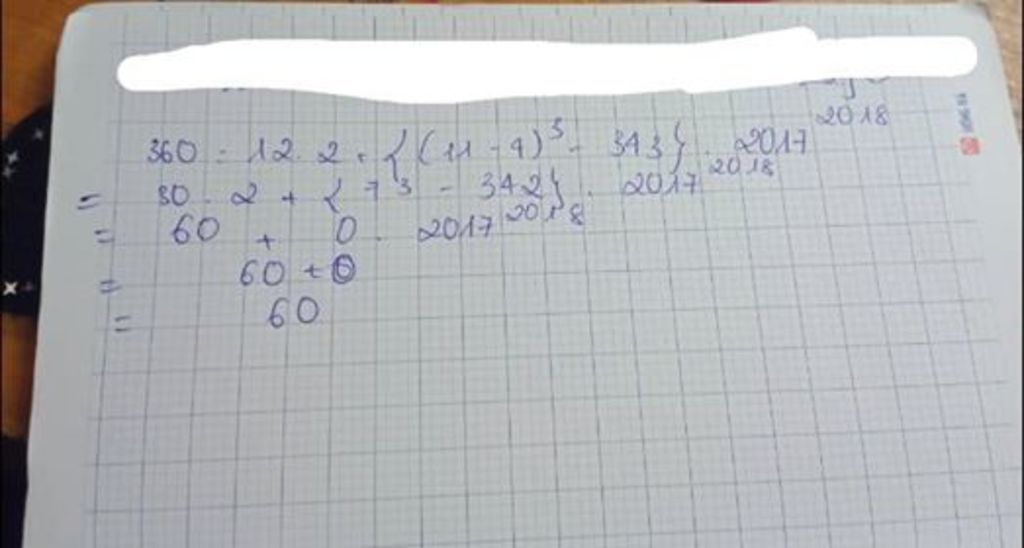 360 : 12 . 2 + { (11 - 4)^3 - 343 } . 2017^2018
= 30 . 2 + { 7^3 - 342 } . 2017^2018
= 60 + 0 . 2017^2018
= 60 + 0
= 60